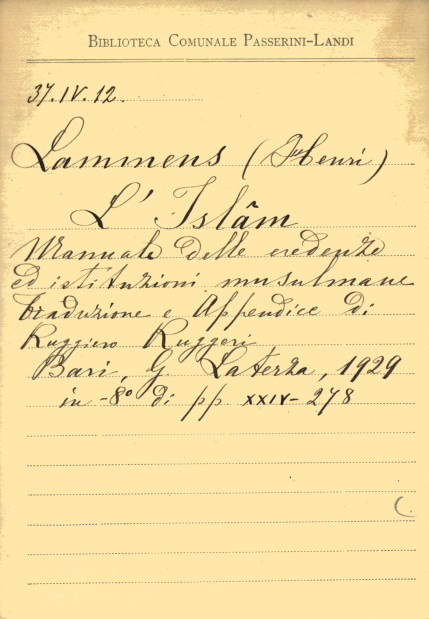 BIBLIOTECA COMUNALE PASSERINI-LANDI
37.IV.12.
Lammens (Henri)
L' Islâm
Manuale delle credenze
ed istituzioni musulmane
traduzione e Appendice di
Ruggiero Ruggeri
Bari, G. Laterza, 1929
in -8° di pp XXIV- 278